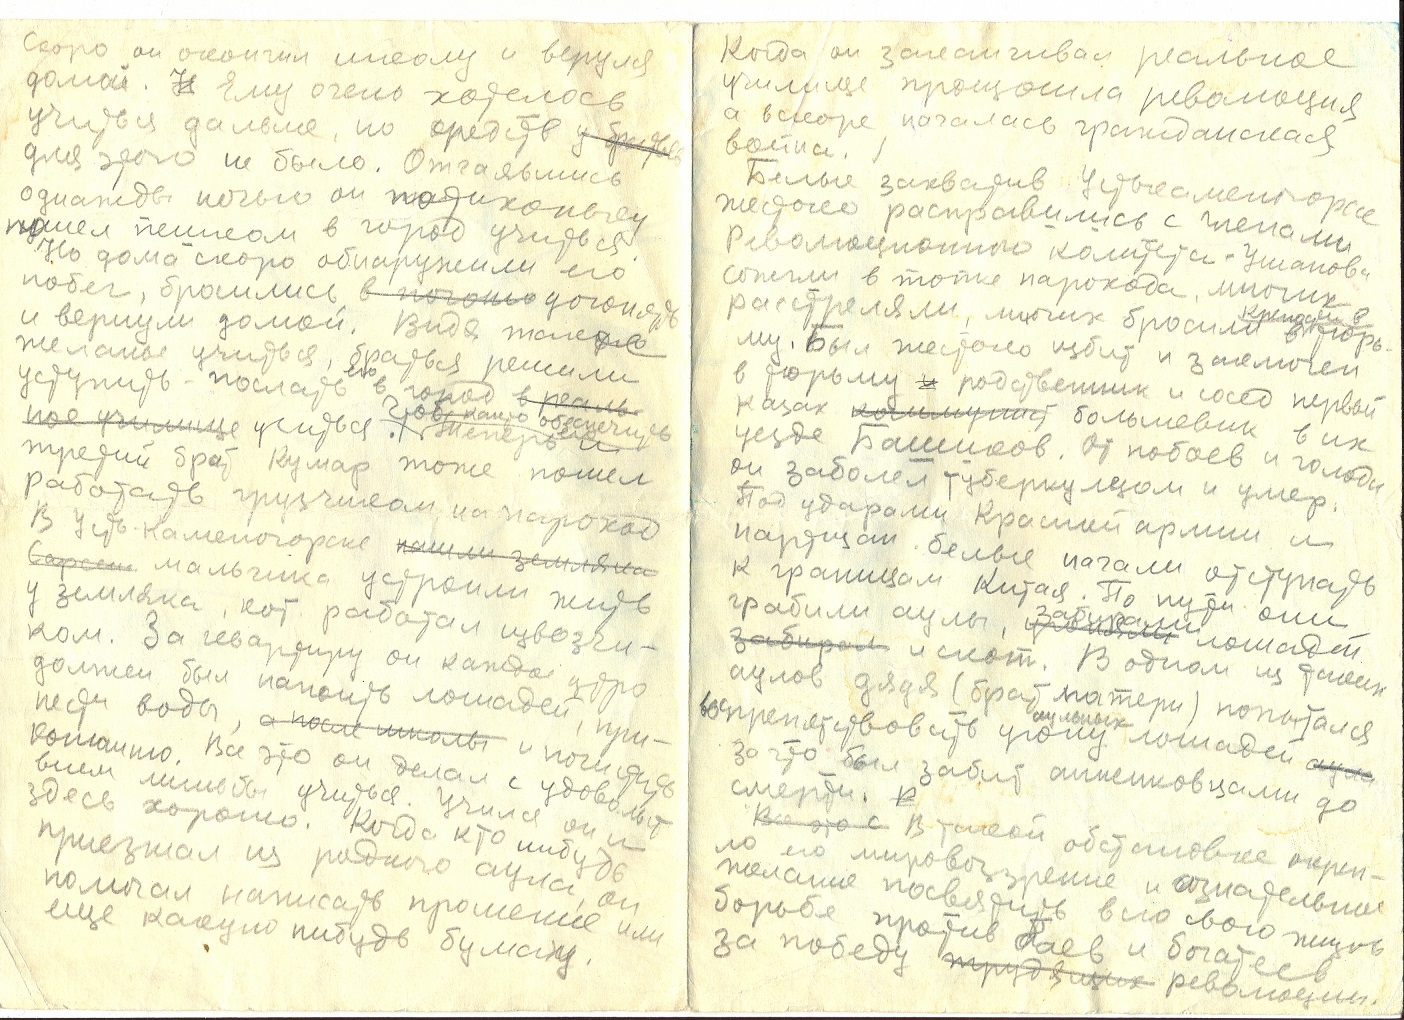 Скоро он окончил школу и верулся
домой. Ему очень хотелось
учиться дальше, но средств у братьев
для этого не было. Отчаявшись
однажды ночью он потихоньку
пошел пешком в город учиться.
Но дома скоро обнаружили его
побег, бросились в погоню догонять
и вернули домой. Видя
желанье учиться, братья решили
уступить - послать его в город в реаль-
ное училище учиться.
чтоб как-то обеспечить
Теперь и
третий брат Кумар тоже пошел
работать грузчиком на пароход
В Усть-Каменогорске нашли земляка
мальчика устроили жить
у земляка, кот. работал извозчи-
ком. За квартиру он каждое утро
должен был напоить лошадей, при-
нести воды, а после школы и почистить
конюшню. Все это он делал с удовольст
вием лишь бы учиться. Учился он и
здесь хорошо. Когда кто нибудь
приезжал из родного аула, он
помогал написать прошение или
еще какую нибудь бумагу.
Когда он заканчивал реальное
училище произошла революция
а вскоре началась гражданская
война.
Белые захватив Устькаменогорск
жестоко расправились с членами
Революционного комитета - Ушанова
сожгли в топке парохода, многих
расстреляли, многих бросили в тюрь-
крепости в
му. Был жестоко избит и заключен
в тюрьму и родственник и сосед первый
казак коммунист большевик в их
уезде Башиков. От побоев и голода
он заболел туберкулезом и умер.
Под ударами Красной армии и
партизан белые начали отступать
к границам Китая. По пути они
грабили аулы, забирали лошадей
забирали и скот. В одном из таких
аулов дядя (брат матери) попытался
воспрепятствовать угону аульных лошадей
за что был забит анненковцами до
смерти.
Все это с В такой обстановке окреп-
ло его мировоззрение и сознательное
желание посвятить всю свою жизнь
борьбе против баев и богатеев
за победу трудящих революции.